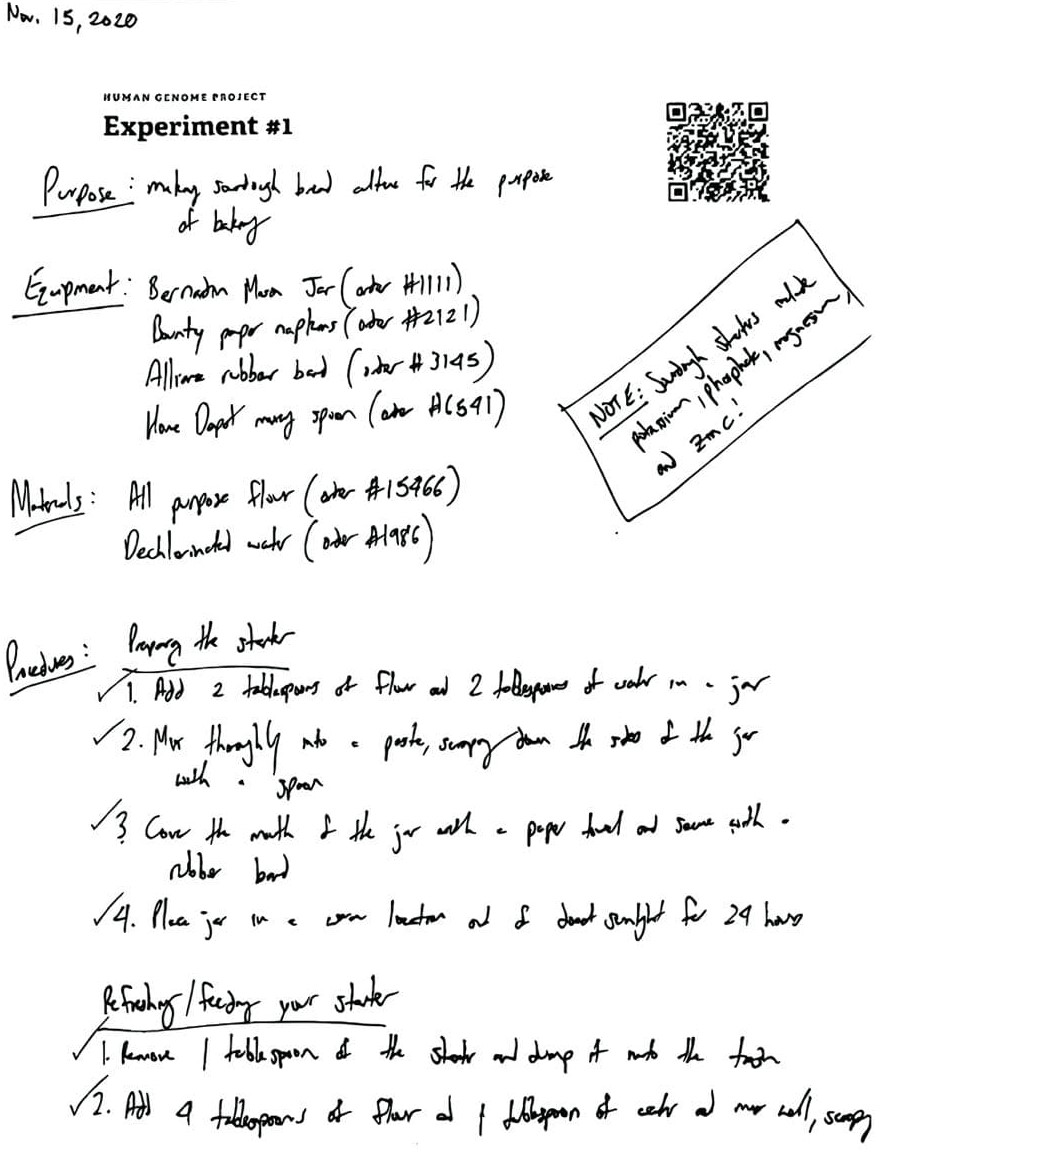 Nov. 15, 2020
HUMAN GENOME PROJECT
Experiment #1
Purpose: making sourdough bread culture for the purpose
of baking
Equipment: Bernardin Mason Jar (order #1111)
Bounty paper napkins (order #2121)
rubber band (order #3145)
Home Depot mixing spoon (order
NOTE: Sourdough starters include
potassium, phosphate, magnesium,
and zinc!
Materials: All purpose flour (order #15466)
Dechlorinated water (order #1986)
Procedures: Preparing the starter
✓ 1. Add 2 tablespoons of flour and 2 tablespoons of water in a jar
✓ 2. Mix thoroughly into a paste, scraping down the sides of the jar
with a spoon
✓ 3 Cover the mouth of the jar with a paper towel and secure with a
rubber band
✓ 4. Place jar in a warm location out of direct sunlight for 24 hours
Refreshing/feeding your starter
✓ 1. Remove 1 tablespoon of the starter and dump it into the trash
✓ 2. Add 4 tablespoons of flour and 1 tablespoon of water and mix well, scraping